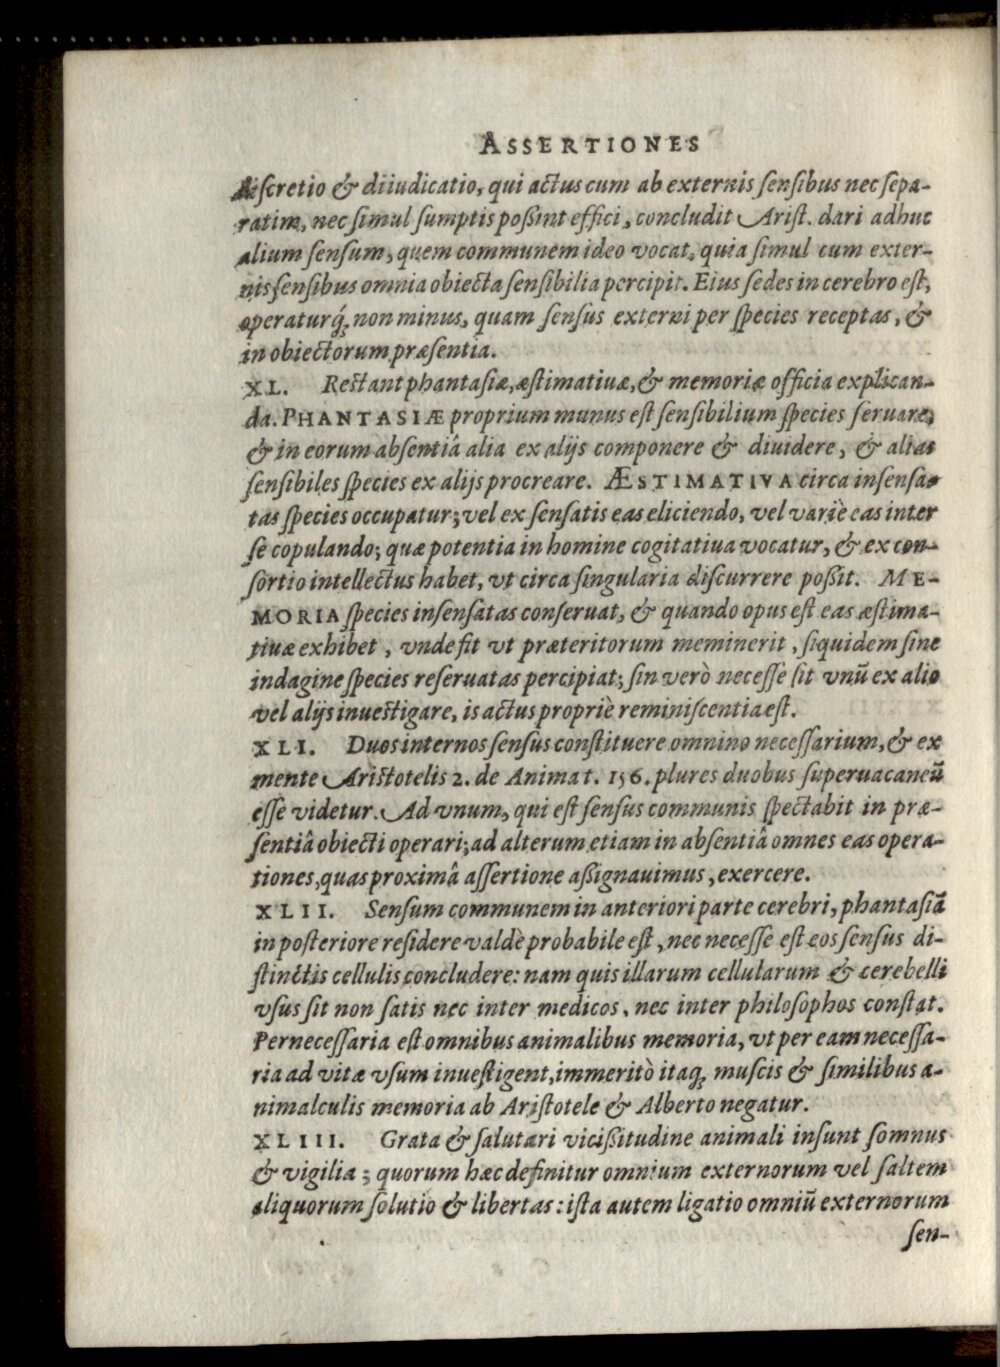 ASSERTIONES
discretio & diiudicatio, qui actus cum ab externis sensibus nec sepa-
ratim, nec simul sumptis possint effici, concludit Arist. dari adhuc
alium sensum, quem communem ideo vocat, quia simul cum exter-
nis sensibus omnia obiecta sensibilia percipit. Eius sedes in cerebro est,
operaturq́; non minus, quam sensus externi per species receptas, &
in obiectorum præsentia.
XL. Restant phantasiæ, æstimatiuæ, & memoriæ officia explican-
da. PHANTASIÆ proprium munus est sensibilium species seruare,
& in eorum absentiâ alia ex alijs componere & diuidere, & alias
sensibiles species ex alijs procreare. ÆSTIMATIVA circa insensa-
tas species occupatur; vel ex sensatis eas eliciendo, vel variè eas inter
se copulando; quæ potentia in homine cogitatiua vocatur, & ex con-
sortio intellectus habet, vt circa singularia discurrere possit. ME-
MORIA species insensatas conseruat, & quando opus est eas æstima-
tiuæ exhibet, vnde fit vt præteritorum meminerit, siquidem sine
indagine species reseruatas percipiat; sin verò necesse sit vnū ex alio
vel alijs inuestigare, is actus propriè reminiscentia est.
XLI. Duos internos sensus constituere omnino necessarium, & ex
mente Aristotelis 2. de Anima t. 156. plures duobus superuacaneū
esse videtur. Ad vnum, qui est sensus communis spectabit in præ-
sentiâ obiecti operari; ad alterum etiam in absentiâ omnes eas opera-
tiones, quas proximâ assertione assignauimus, exercere.
XLII. Sensum communem in anteriori parte cerebri, phantasiā
in posteriore residere valdè probabile est, nec necesse est eos sensus di-
stinctis cellulis concludere: nam quis illarum cellularum & cerebelli
vsus sit non satis nec inter medicos, nec inter philosophos constat.
Pernecessaria est omnibus animalibus memoria, vt per eam necessa-
ria ad vitæ vsum inuestigent, immeritò itaq; muscis & similibus a-
nimalculis memoria ab Aristotele & Alberto negatur.
XLIII. Grata & salutari vicissitudine animali insunt somnus
& vigilia; quorum hæc definitur omnium externorum vel saltem
aliquorum solutio & libertas: ista autem ligatio omniū externorum
sen-